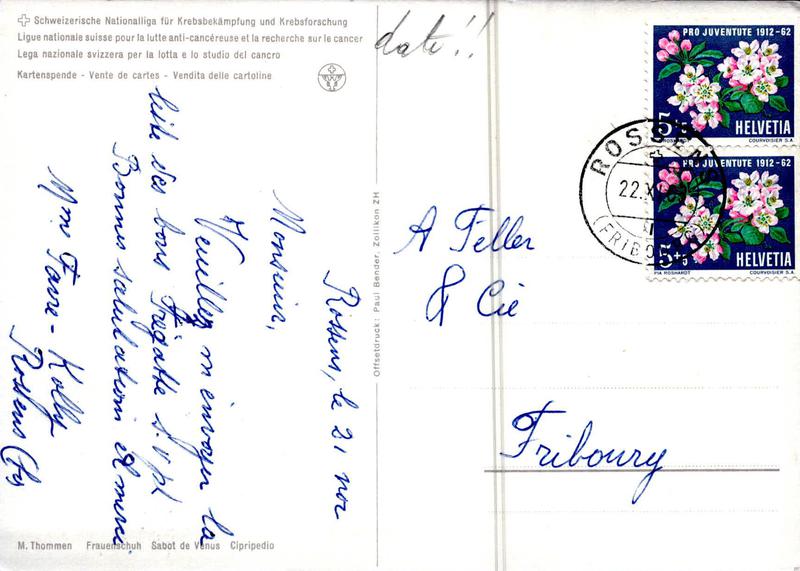 Schweizerische Nationalliga für Krebsbekämpfung und Krebsforschung
Ligue nationale suisse pour la lutte anti-cancéreuse et la recherche sur le cancer
Lega nazionale svizzera per la lotta e lo studio del cancro
Kartenspende - Vente de cartes - Vendita delle cartoline
date!!
Rossens, le 21 nov
Monsieur,
Veuillez m'envoyer la
liste des bons Frégatte s.v.pl
Bonnes salutations et merci
Mme Favre-Kolly
Rossens
M. Thommen Frauenschuh Sabot de Vénus Cipripedio
Offsetdruck: Paul Bender, Zollikon ZH
A Feller
& Cie
Fribourg
PRO JUVENTUTE 1912-62
5+5
HELVETIA
COURVOISIER S.A.
PRO JUVENTUTE 1912-62
5+5
HELVETIA
PIA ROSHARDT COURVOISIER S.A.
ROSSENS
22.XI
(FRIBOURG)